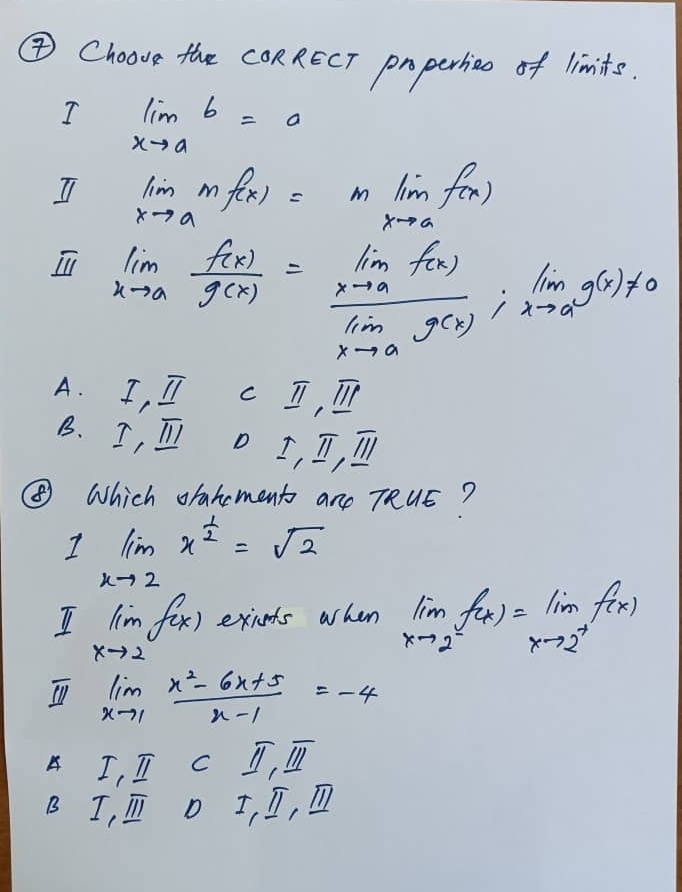 ⑦ Choose the CORRECT properties of limits.
I lim x→a b = a
II lim x→a m f(x) = m lim x→a f(x)
III lim x→a f(x)/g(x) = lim x→a f(x) / lim x→a g(x) ; lim x→a g(x) ≠ 0
A. I, II C II, III
B. I, III D I, II, III
⑧ Which statements are TRUE ?
I lim x→2 x^(1/2) = √2
II lim x→2 f(x) exists when lim x→2⁻ f(x) = lim x→2⁺ f(x)
III lim x→1 (x² - 6x + 5)/(x - 1) = -4
A I, II C II, III
B I, III D I, II, III